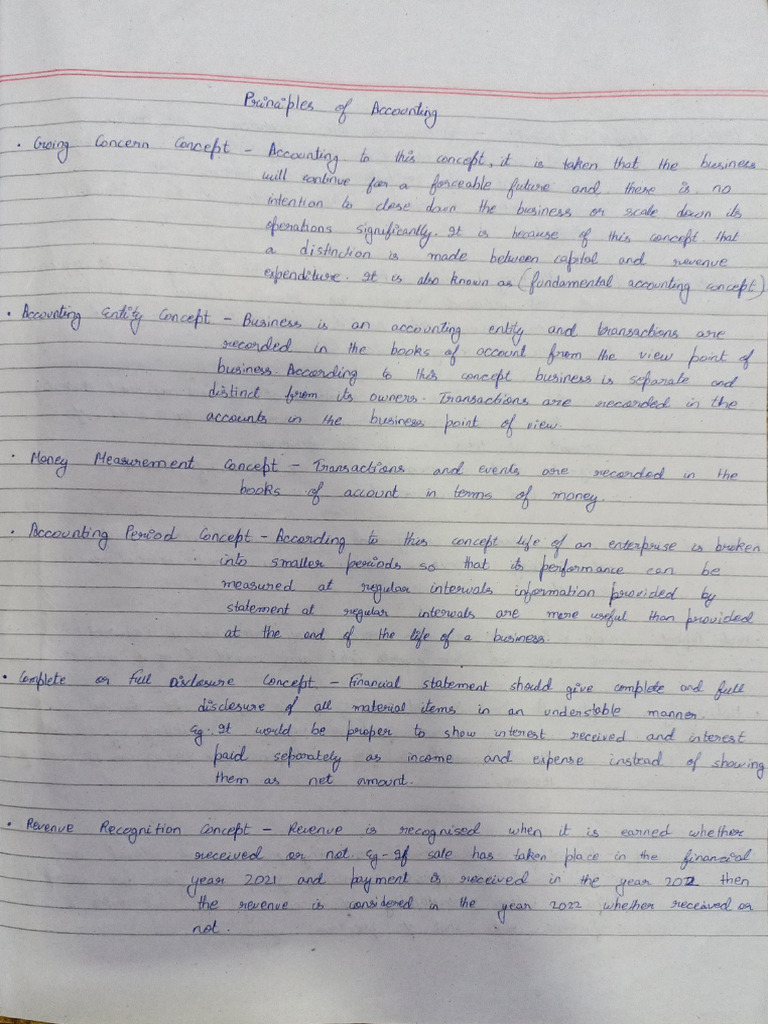 Principles of Accounting
• Going Concern Concept - Accounting to this concept, it is taken that the business
will continue for a forceable future and there is no
intention to close down the business or scale down its
operations significantly. It is because of this concept that
a distinction is made between capital and revenue
expenditure. It is also known as (fundamental accounting concept).
• Accounting Entity Concept - Business is an accounting entity and transactions are
recorded in the books of account from the view point of
business. According to this concept business is separate and
distinct from its owners. Transactions are recorded in the
accounts in the business point of view.
• Money Measurement Concept - Transactions and events are recorded in the
books of account in terms of money.
• Accounting Period Concept - According to this concept life of an enterprise is broken
into smaller periods so that its performance can be
measured at regular intervals information provided by
statement at regular intervals are more useful than provided
at the end of the life of a business.
• Complete or Full Disclosure Concept - Financial statement should give complete and full
disclosure of all material items in an understable manner.
Eg:- It would be proper to show interest received and interest
paid separately as income and expense instead of showing
them as net amount.
• Revenue Recognition Concept - Revenue is recognised when it is earned whether
received or not. Eg - If sale has taken place in the financial
year 2021 and payment is received in the year 2022 then
the revenue is considered in the year 2022 whether received or
not.